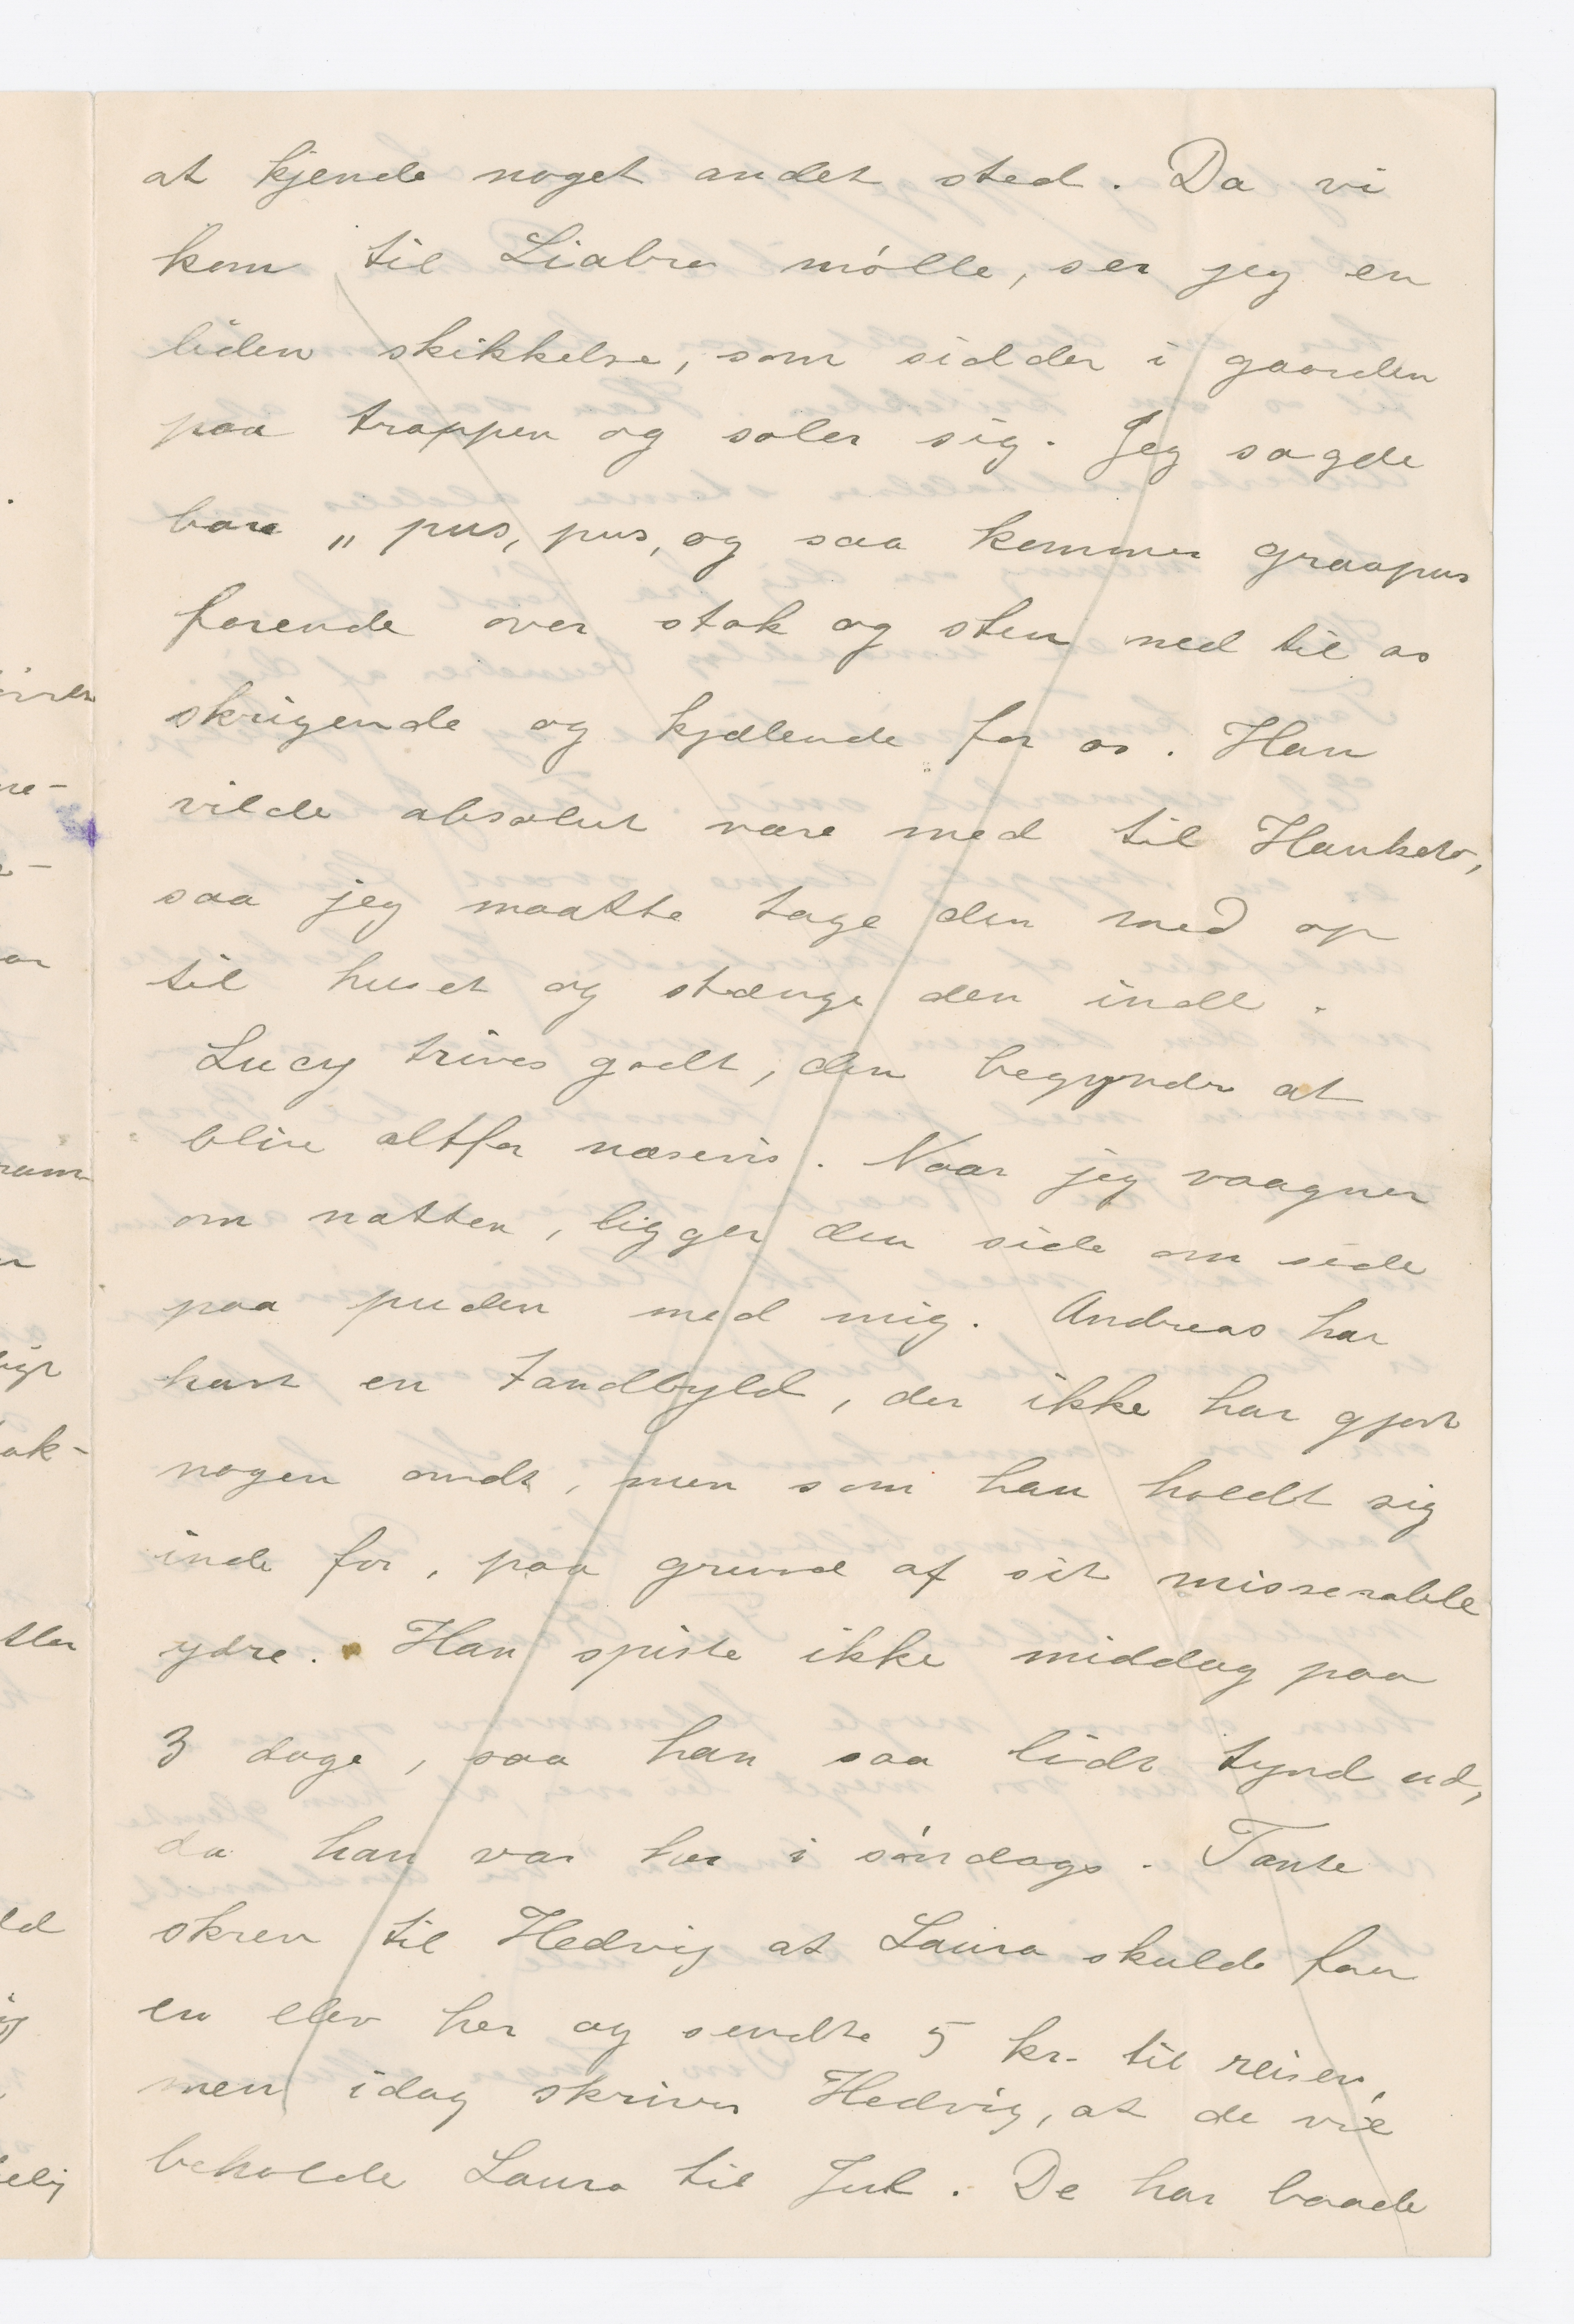 at kjende noget andet sted. Da vi
kom til Liabro mólle, ser jeg en
liden skikkelse, som sidder i gaarden
paa trappen og soler sig. Jeg sagde
bare „ pus, pus, og saa kommer graapus
farende over stok og sten ned til os
skrigende og kjælende for os. Han
vilde absolut være med til Hankets,
saa jeg maatte tage den med op
til huset og stænge den inde.
Lucy trives godt, den begynder at
blive altfor næsevis. Naar jeg vaagner
om natten, ligger den side om side
paa puden med mig. Andreas har
havt en Tandbyld, der ikke har gjort
nogen ondt, men som han holdt sig
inde for, paa grund af sit misserable
ydre. Han spiste ikke middag paa
3 dage, saa han saa lidt tynd ud,
da han var her i sóndags. Tante
skrev til Hedvig at Laura skulde faa
en elev her og sendte 5 kr. til reisen,
men idag skriver Hedvig, at de vil
beholde Laura til Jul. De har baade